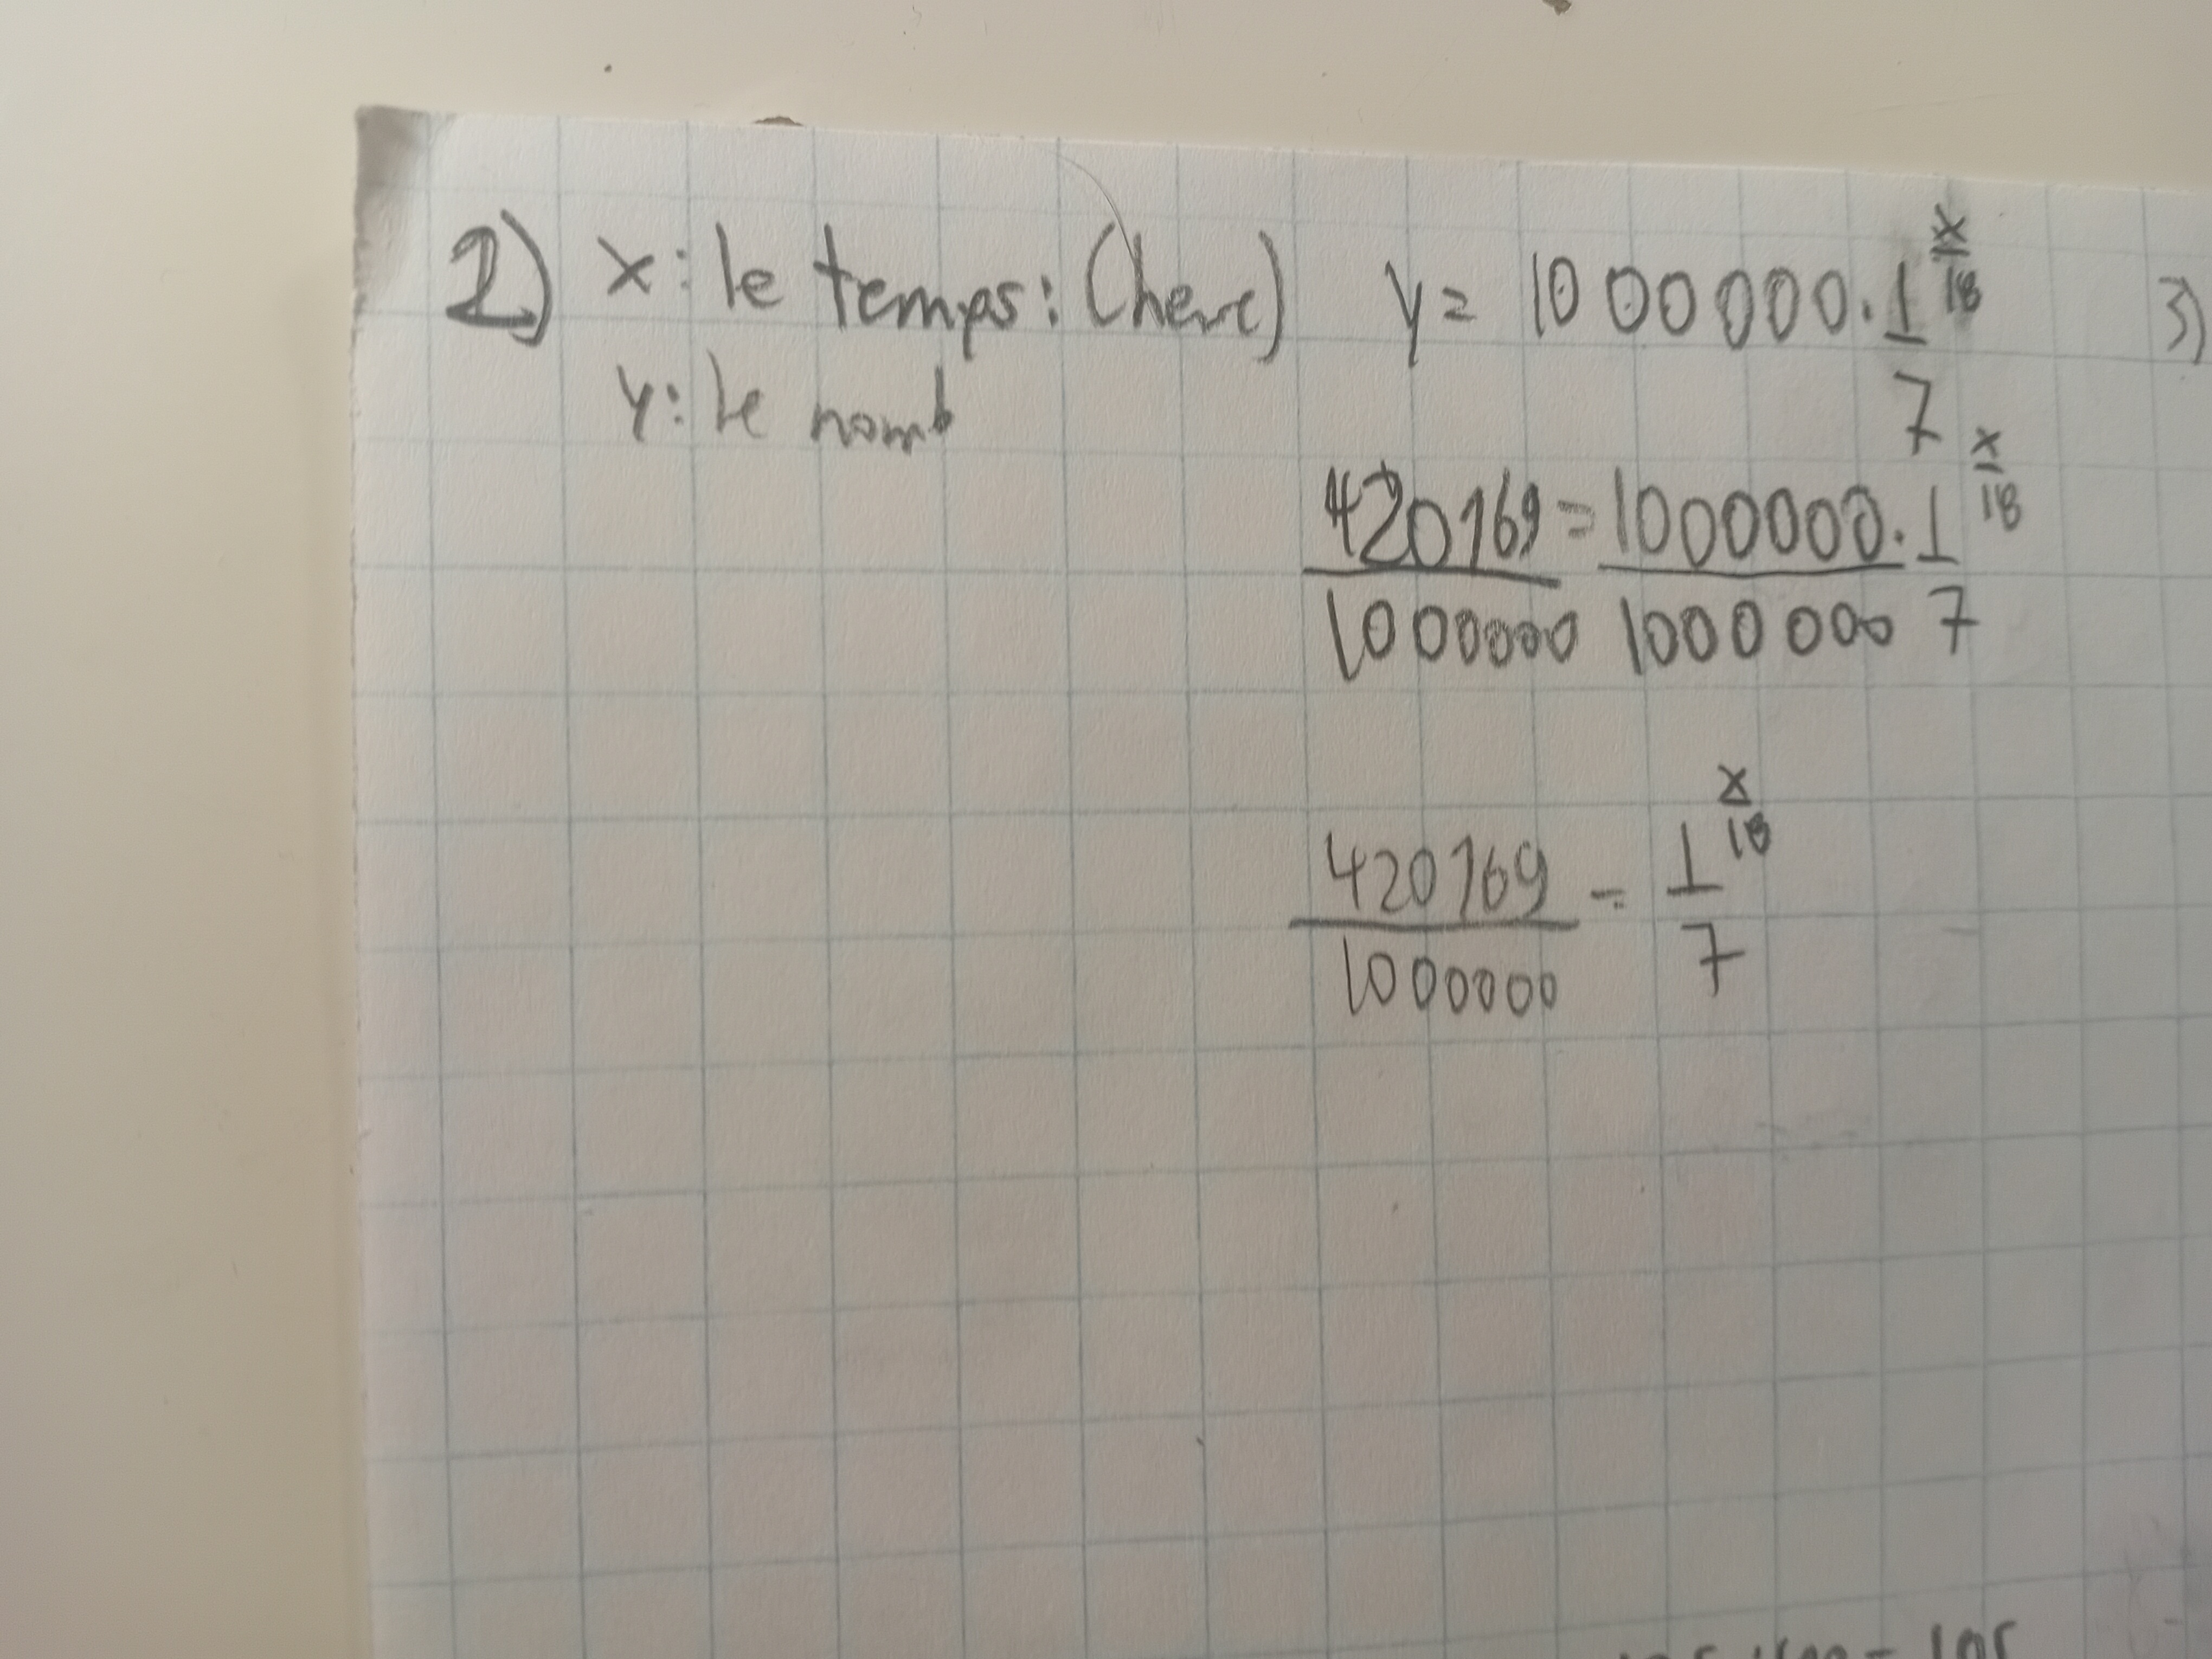 2) x: le temps: (heure) y = 1000000 . 1/7 ^ x/18 3)
y: le nomb
420169/1000000 = 1000000/1000000 . 1/7 ^ x/18
420169/1000000 = 1/7 ^ x/18